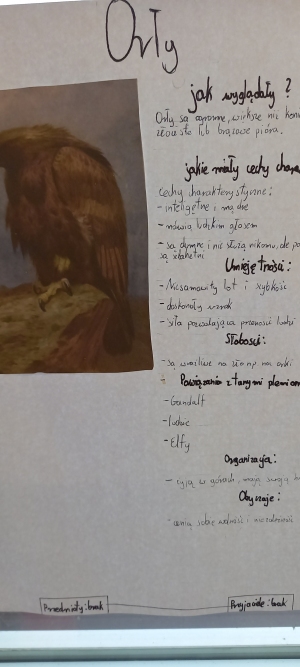 Orły
jak wyglądały ?
Orły są ogromne, większe niż
złociste lub brązowe pióra.
jakie miały cechy
Cechy charakterystyczne:
- inteligętne i mądre
- mówią ludzkim głosem
- są dumne i nie służą nikomu, ale
są szlachetni
Umiejętności:
- Niesamowity lot i szybkość
- doskonały wzrok
- siła pozwalająca przenosić ludzi
Słabości:
- są wrażliwe na
Powiązania z innymi plemion
- Gandalf
- ludzie
- Elfy
Organizacja:
- żyją w górach, mają swoją
Obyczaje:
- cenią sobie wolność i niezależność
Przedmioty: brak
Przyjaciele: brak